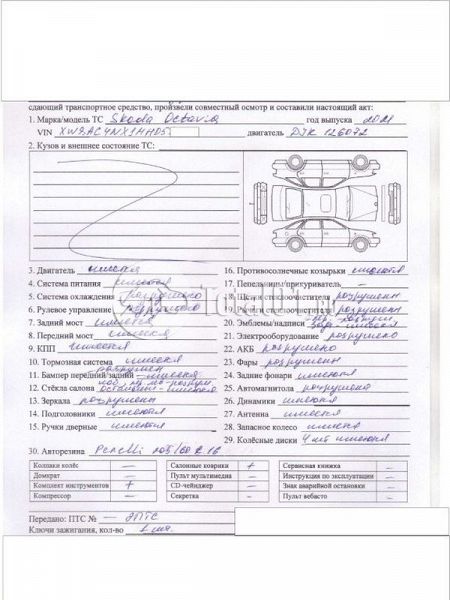 сдающий транспортное средство, произвели совместный осмотр и составили настоящий акт:
1. Марка/модель ТС Skoda Octavia год выпуска 2021
VIN двигатель DJK 126072
2. Кузов и внешнее состояние ТС:
3. Двигатель имеется
16. Противосолнечные козырьки имеются
4. Система питания имеется
17. Пепельницы/прикуриватель —
5. Система охлаждения разрушено
18. Щетки стеклоочистителя разрушены
6. Рулевое управление разрушено
19. разрушен
7. Задний мост имеется
20. Эмблемы/надписи
8. Передний мост имеется
21. Электрооборудование разрушено
9. КПП имеется
22. АКБ разрушено
10. Тормозная система имеется
23. Фары разрушены
11. Бампер передний/задний разрушен - имеется
24. Задние фонари имеются
12. Стёкла салона остальные - имеются
25. Автомагнитола разрушена
13. Зеркала разрушены
26. Динамики имеются
14. Подголовники имеются
27. Антенна имеется
15. Ручки дверные имеются
28. Запасное колесо имеется
29. Колёсные диски 4 шт имеются
30. Авторезина Pirelli 205/60 R 16
Колпаки колёс — Салонные коврики + Сервисная книжка —
Домкрат — Пульт мультимедиа — Инструкция по эксплуатации —
Комплект инструментов + CD-чейнджер — Знак аварийной остановки —
Компрессор — Секретка — Пульт вебасто —
Передано: ПТС № — ЭПТС
Ключи зажигания, кол-во 1 шт.